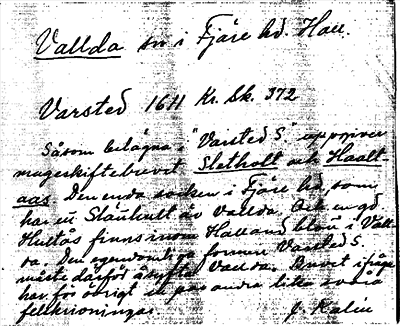 Vallda sn i Fjäre hd. Hall.
Varsted 1611 Kr. Sk. 372
Såsom belägna i "Varsted S." uppgiver
mageskiftebrevet Sletholt och Haalt-
aas. Den enda socken i Fjäre hd, som
har ett Släthult är Vallda. Och en gd.
Hultås finns inom Halland blott i Vall-
da. Den egendomliga formen Varsted S.
måste därför åsyfta Vallda. Brevet i fråga
har för övrigt ett par andra lika svåra
felskrivningar. J. Kalén